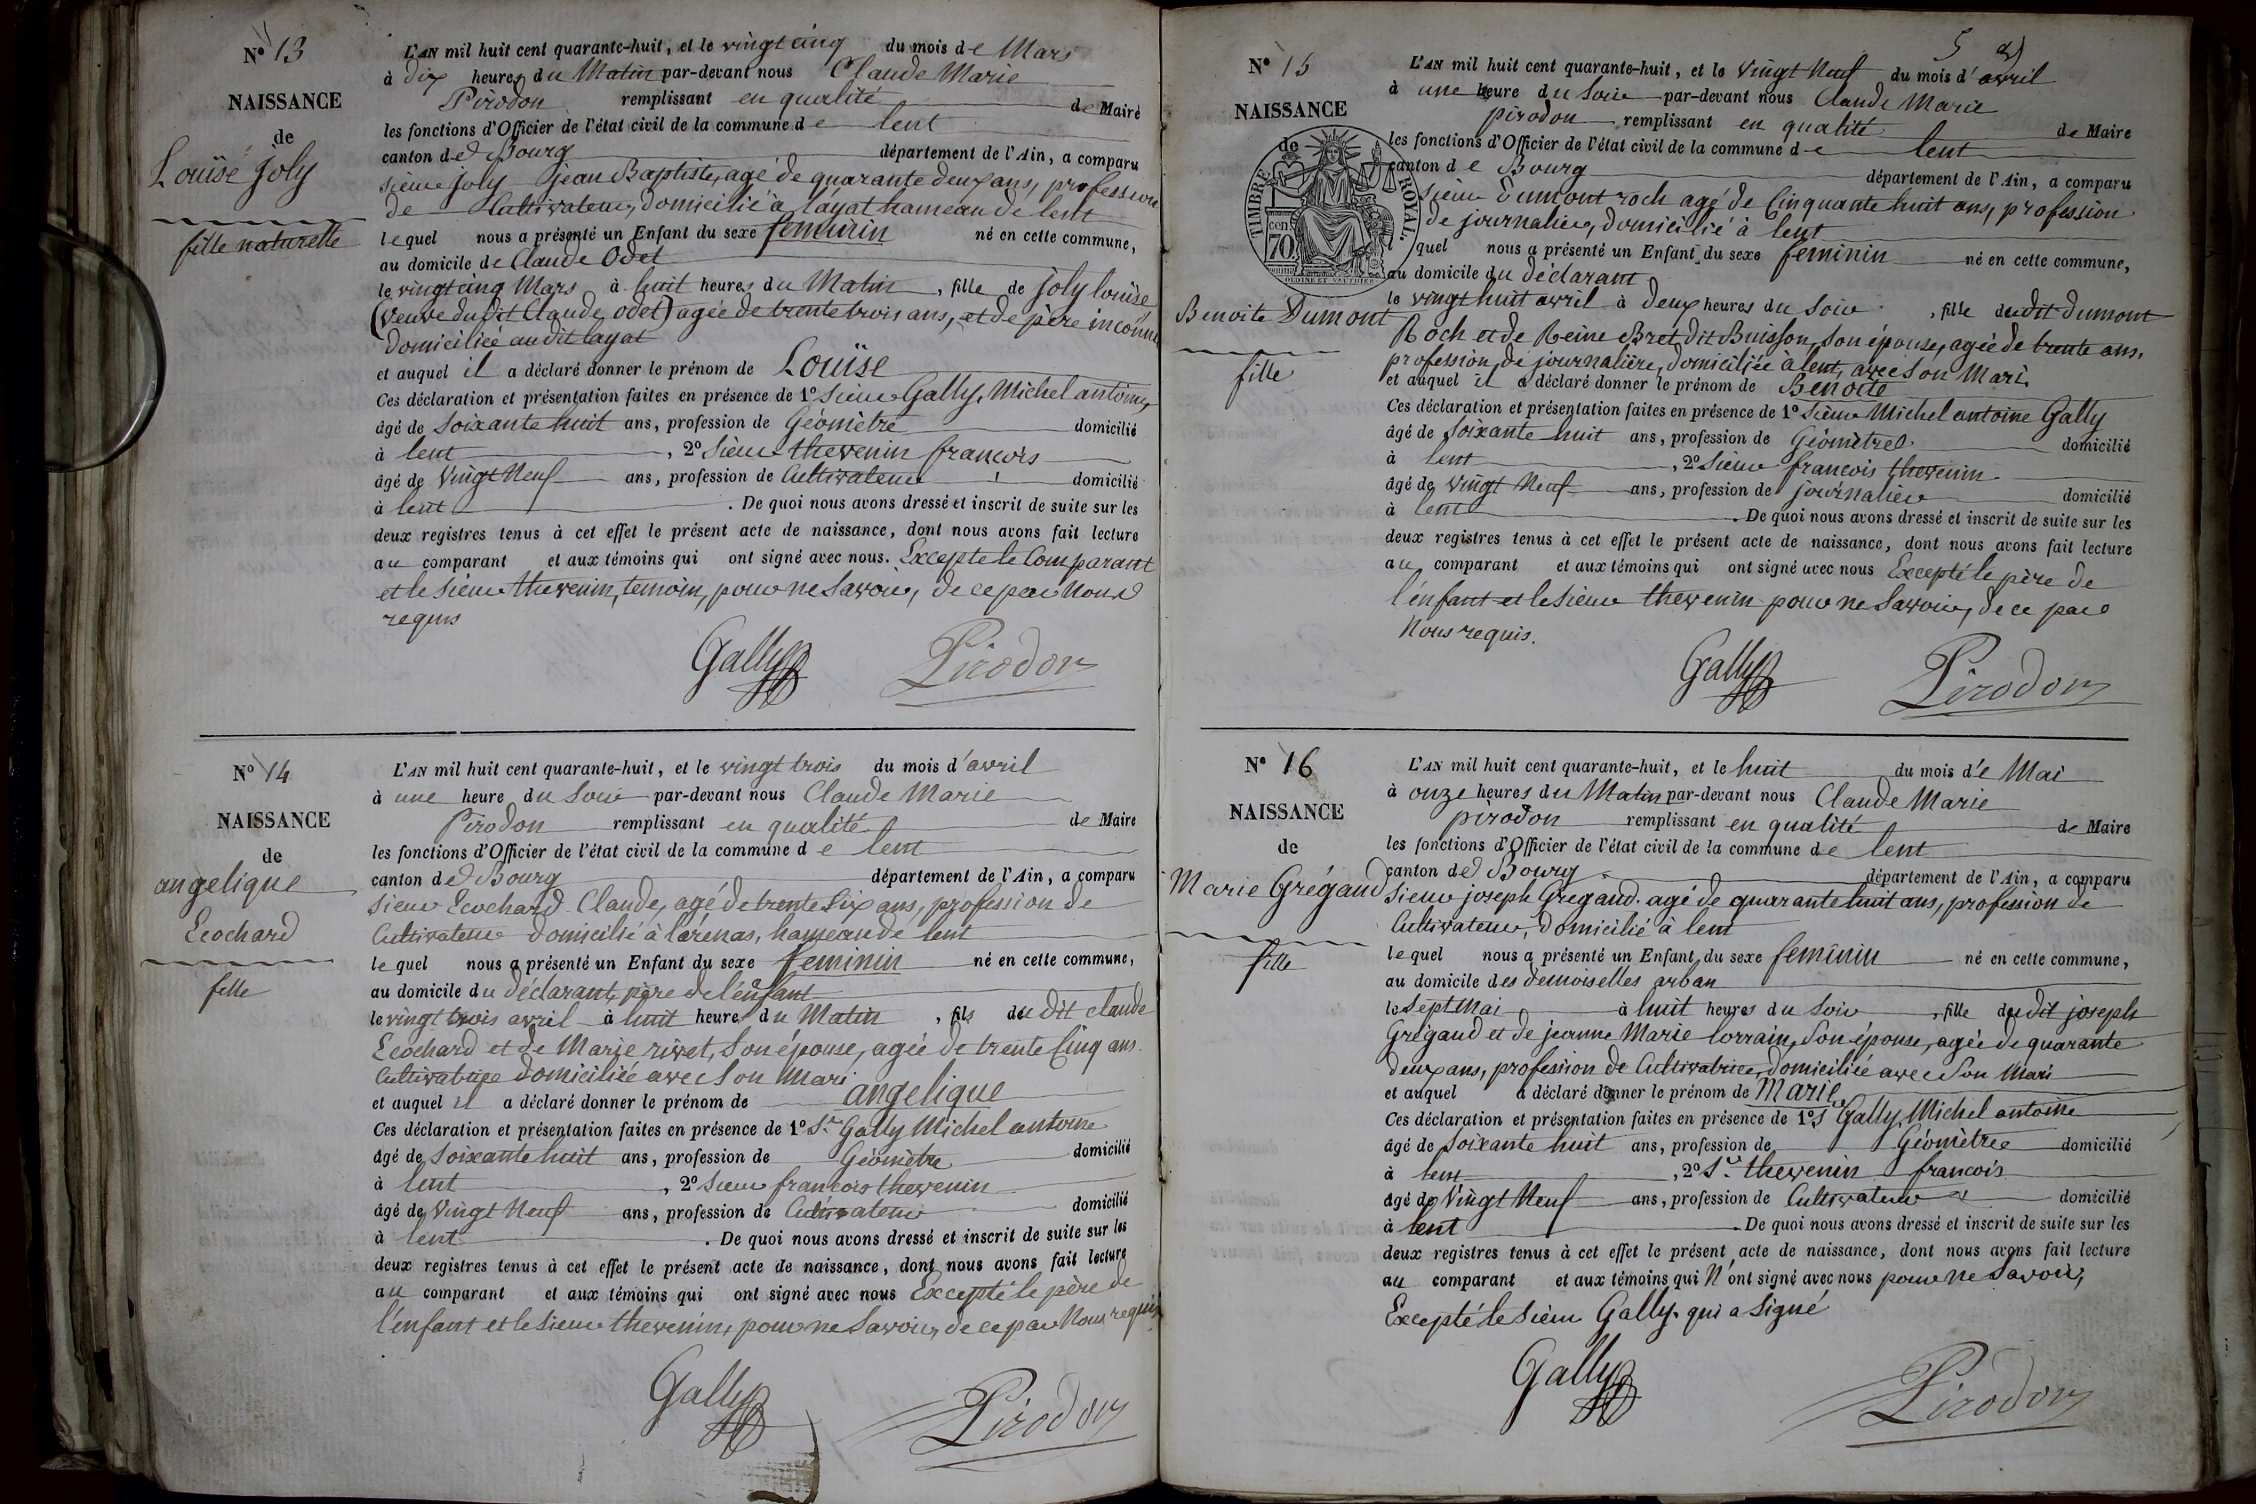 N° 13
NAISSANCE
de
Louïse joly
fille naturelle
L'AN mil huit cent quarante-huit, et le vingt cinq du mois de Mars
à dix heures du Matin par-devant nous Claude Marie
Pirodon remplissant en qualité de Maire
les fonctions d'Officier de l'état civil de la commune de lent
canton de Bourg département de l'Ain, a comparu
sieur joly jean Baptiste, agé de quarante deux ans, profession
de Cultivateur, domicilié à layat hameau de lent
lequel nous a présenté un Enfant du sexe feminin né en cette commune,
au domicile de Claude Odet
le vingt cinq Mars à huit heures du Matin, fille de joly louïse
(veuve du dit Claude odet) agée de trente trois ans, et de père inconnu
domiciliée au dit layat
et auquel il a déclaré donner le prénom de Louïse
Ces déclaration et présentation faites en présence de 1° sieur Gally, Michel antoine,
âgé de soixante huit ans, profession de Géomètre domicilié
à lent, 2° Sieur thevenin francois
âgé de Vingt Neuf ans, profession de Cultivateur domicilié
à lent. De quoi nous avons dressé et inscrit de suite sur les
deux registres tenus à cet effet le présent acte de naissance, dont nous avons fait lecture
au comparant et aux témoins qui ont signé avec nous. Excepté le Comparant
et le sieur thevenin, temoin, pour ne savoir, de ce par Nous
requis
Gally Pirodon
N° 14
NAISSANCE
de
angelique
Ecochard
fille
L'AN mil huit cent quarante-huit, et le vingt trois du mois d'avril
à une heure du Soir par-devant nous Claude Marie
Pirodon remplissant en qualité de Maire
les fonctions d'Officier de l'état civil de la commune de lent
canton de Bourg département de l'Ain, a comparu
sieur Ecochard Claude, agé de trente Six ans, profession de
Cultivateur domicilié à lorénas, hameau de lent
lequel nous a présenté un Enfant du sexe feminin né en cette commune,
au domicile du déclarant, père de l'enfant
le vingt trois avril à huit heure du Matin, fils du dit claude
Ecochard et de Marie rivet, Son épouse, agée de trente Cinq ans
Cultivatrice domiciliée avec Son Mari
et auquel il a déclaré donner le prénom de angelique
Ces déclaration et présentation faites en présence de 1° Sr Gally Michel antoine
âgé de soixante huit ans, profession de Géomètre domicilié
à lent, 2° sieur francois thevenin
âgé de Vingt Neuf ans, profession de Cultivateur domicilié
à lent. De quoi nous avons dressé et inscrit de suite sur les
deux registres tenus à cet effet le présent acte de naissance, dont nous avons fait lecture
au comparant et aux témoins qui ont signé avec nous Excepté le père de
l'enfant et le Sieur thevenin, pour ne Savoir, de ce par Nous requis
Gally Pirodon
5
N° 15
NAISSANCE
de
TIMBRE ROYAL.
cen. 70
Benoite Dumont
fille
L'AN mil huit cent quarante-huit, et le Vingt Neuf du mois d'avril
à une heure du Soir par-devant nous Claude Marie
pirodon remplissant en qualité de Maire
les fonctions d'Officier de l'état civil de la commune de lent
canton de Bourg département de l'Ain, a comparu
sieur Dumont roch agé de Cinquante huit ans, profession
de journalier, domicilié à lent
lequel nous a présenté un Enfant du sexe feminin né en cette commune,
au domicile du déclarant
le vingt huit avril à deux heures du soir, fille du dit dumont
Roch et de Reine Bret dit Buisson, Son épouse, agée de trente ans,
profession de journalière, domiciliée à lent, avec Son Mari,
et auquel il a déclaré donner le prénom de Benoite
Ces déclaration et présentation faites en présence de 1° Sieur Michel antoine Gally
âgé de Soixante huit ans, profession de Géomètre domicilié
à lent, 2° Sieur francois thevenin
âgé de vingt Neuf ans, profession de journalier domicilié
à lent. De quoi nous avons dressé et inscrit de suite sur les
deux registres tenus à cet effet le présent acte de naissance, dont nous avons fait lecture
au comparant et aux témoins qui ont signé avec nous Excepté le père de
l'enfant et le Sieur thevenin pour ne Savoir, de ce par
Nous requis.
Gally Pirodon
N° 16
NAISSANCE
de
Marie Grégaud
fille
L'AN mil huit cent quarante-huit, et le huit du mois de Mai
à onze heures du Matin par-devant nous Claude Marie
pirodon remplissant en qualité de Maire
les fonctions d'Officier de l'état civil de la commune de lent
canton de Bourg département de l'Ain, a comparu
Sieur joseph Gregaud. agé de quarante huit ans, profession de
Cultivateur, domicilié à lent
lequel nous a présenté un Enfant du sexe feminin né en cette commune,
au domicile des demoiselles arban
le Sept Mai à huit heures du Soir, fille du dit joseph
Grégaud et de jeanne Marie lorrain, Son épouse, agée de quarante
deux ans, profession de Cultivatrice, domiciliée avec Son Mari
et auquel a déclaré donner le prénom de Marie
Ces déclaration et présentation faites en présence de 1° Sr Gally, Michel antoine
âgé de Soixante huit ans, profession de Géomètre domicilié
à lent, 2° Sr thevenin francois
âgé de Vingt Neuf ans, profession de Cultivateur domicilié
à lent. De quoi nous avons dressé et inscrit de suite sur les
deux registres tenus à cet effet le présent acte de naissance, dont nous avons fait lecture
au comparant et aux témoins qui N'ont signé avec nous pour ne Savoir,
Excepté le Sieur Gally qui a Signé
Gally Pirodon